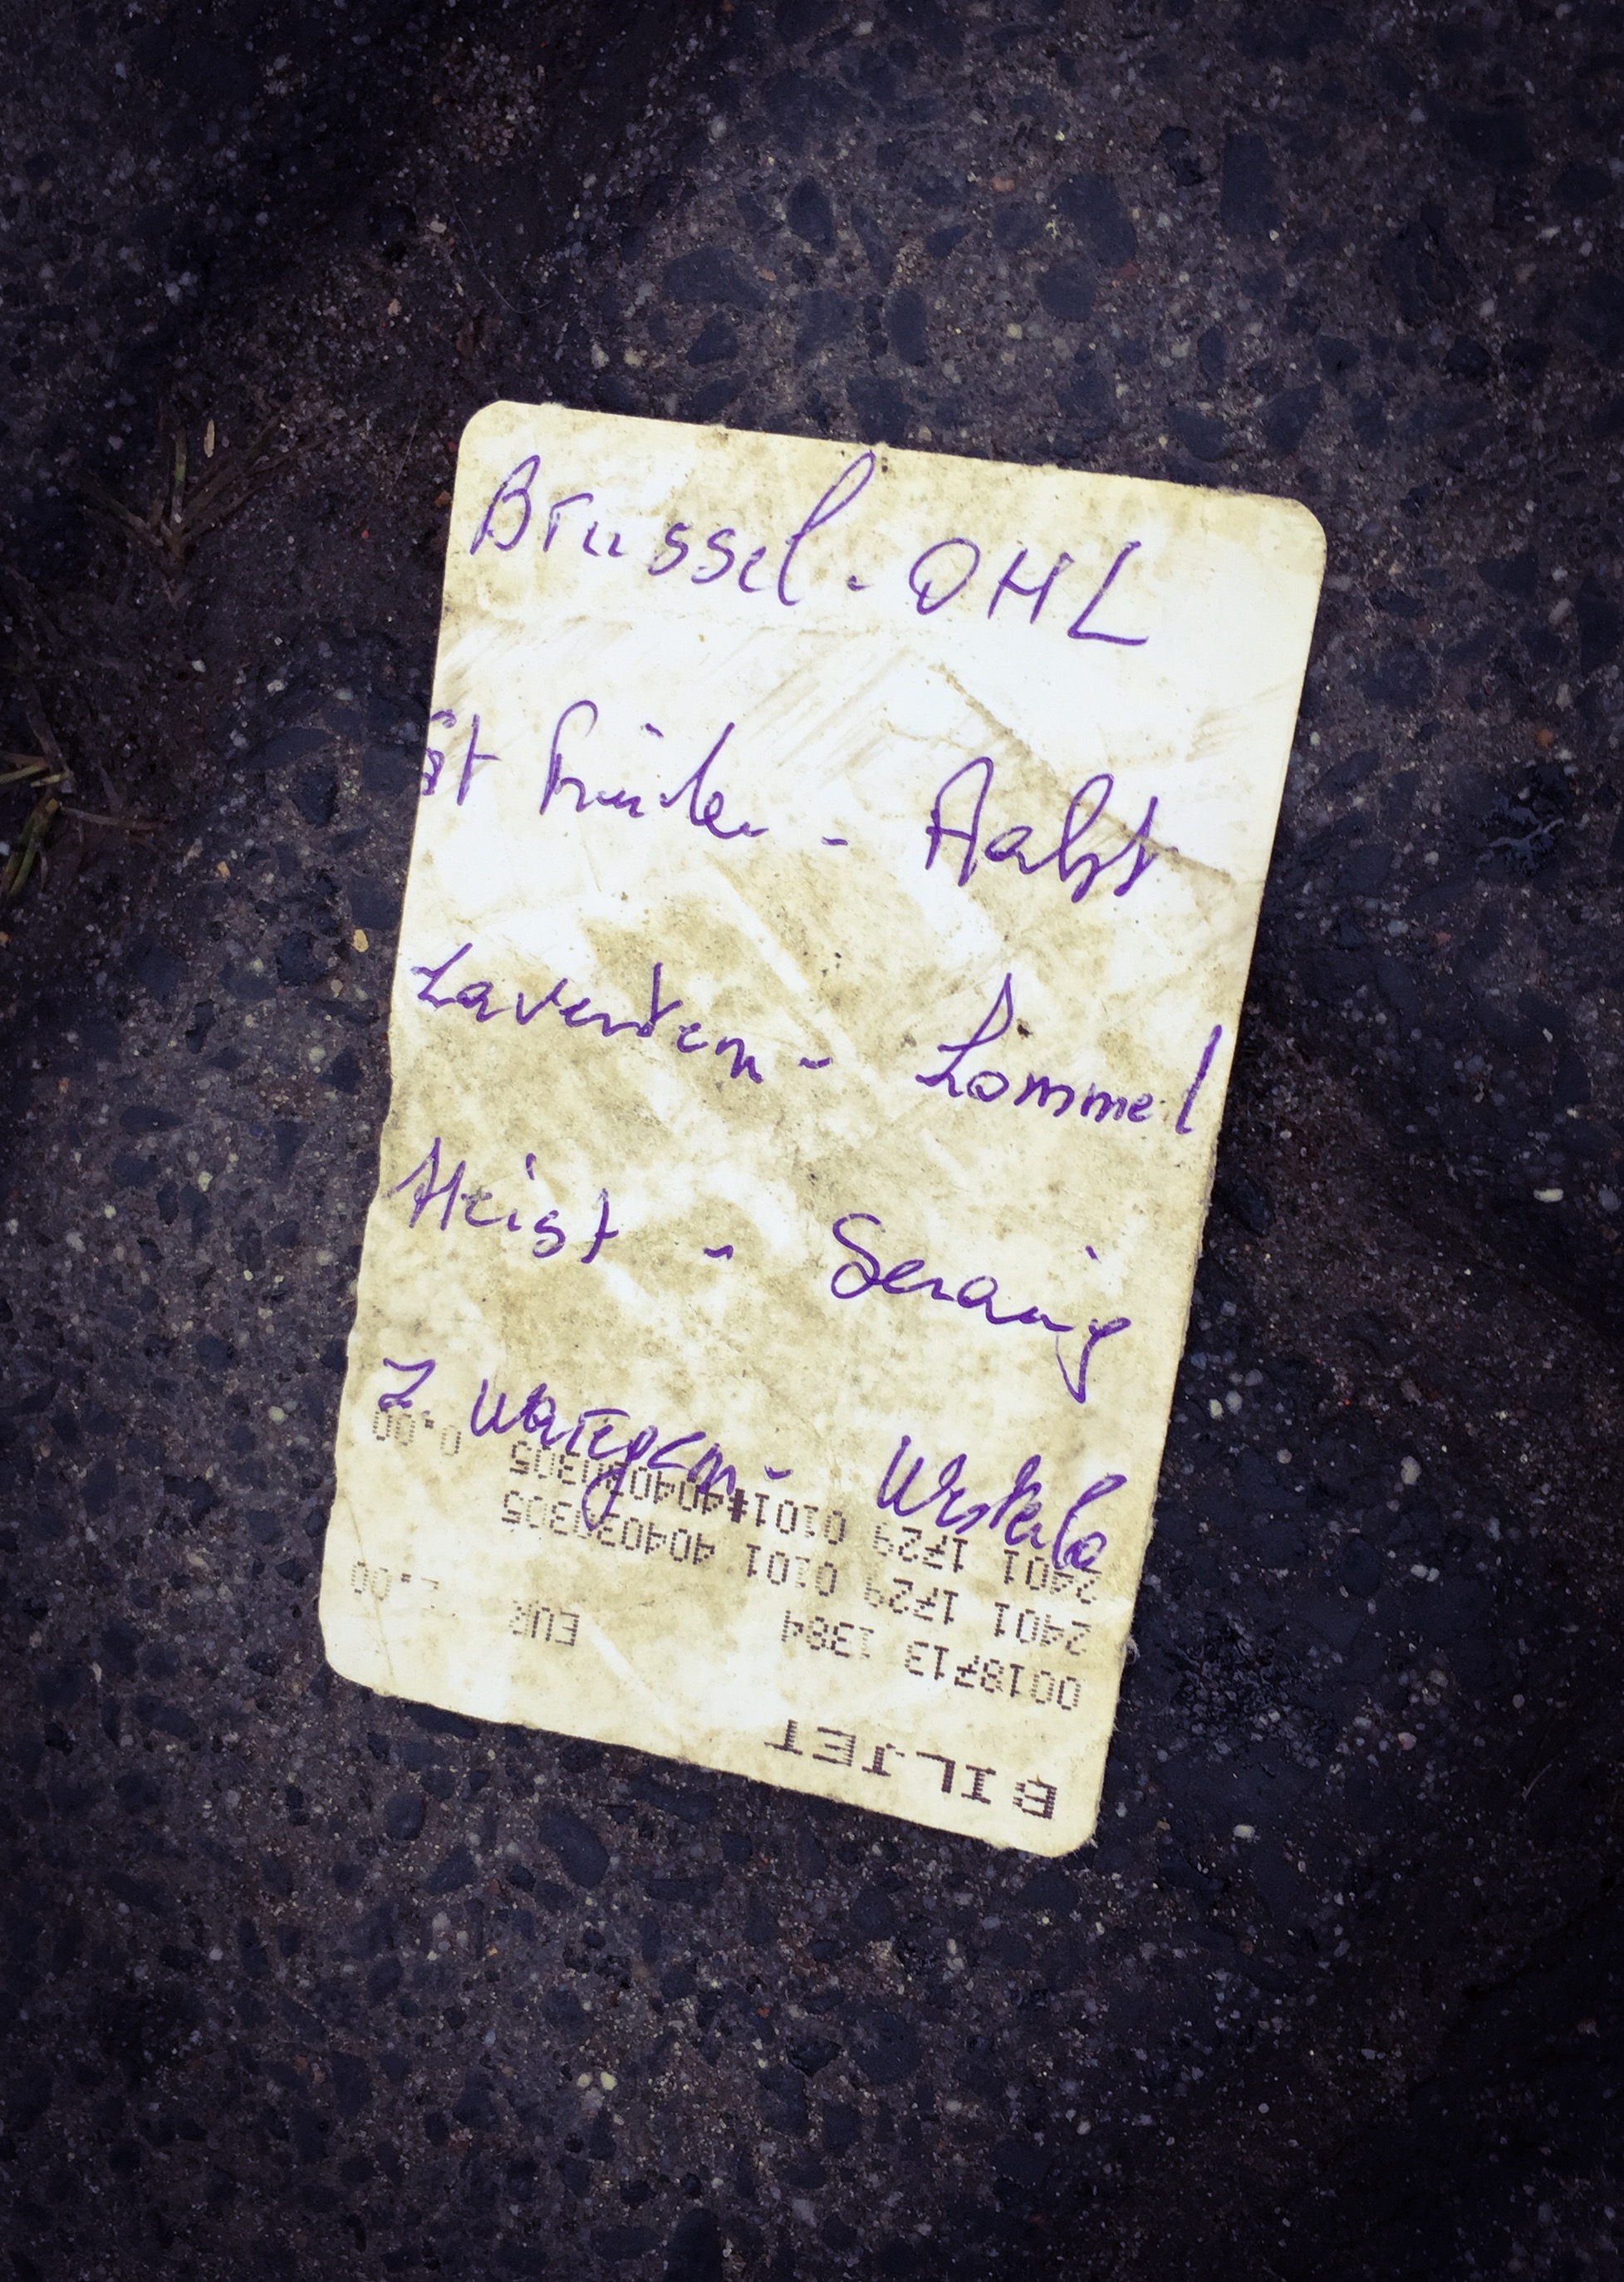 Brussel - OHL
St Truiden - Aalst
Zaventem - Lommel
Heist - Seraing
Z. Waregem - Westerlo
BILJET
0018713 1384 EUR 2.00
2401 1729 0101 404030305
2401 1729 0101 0.00